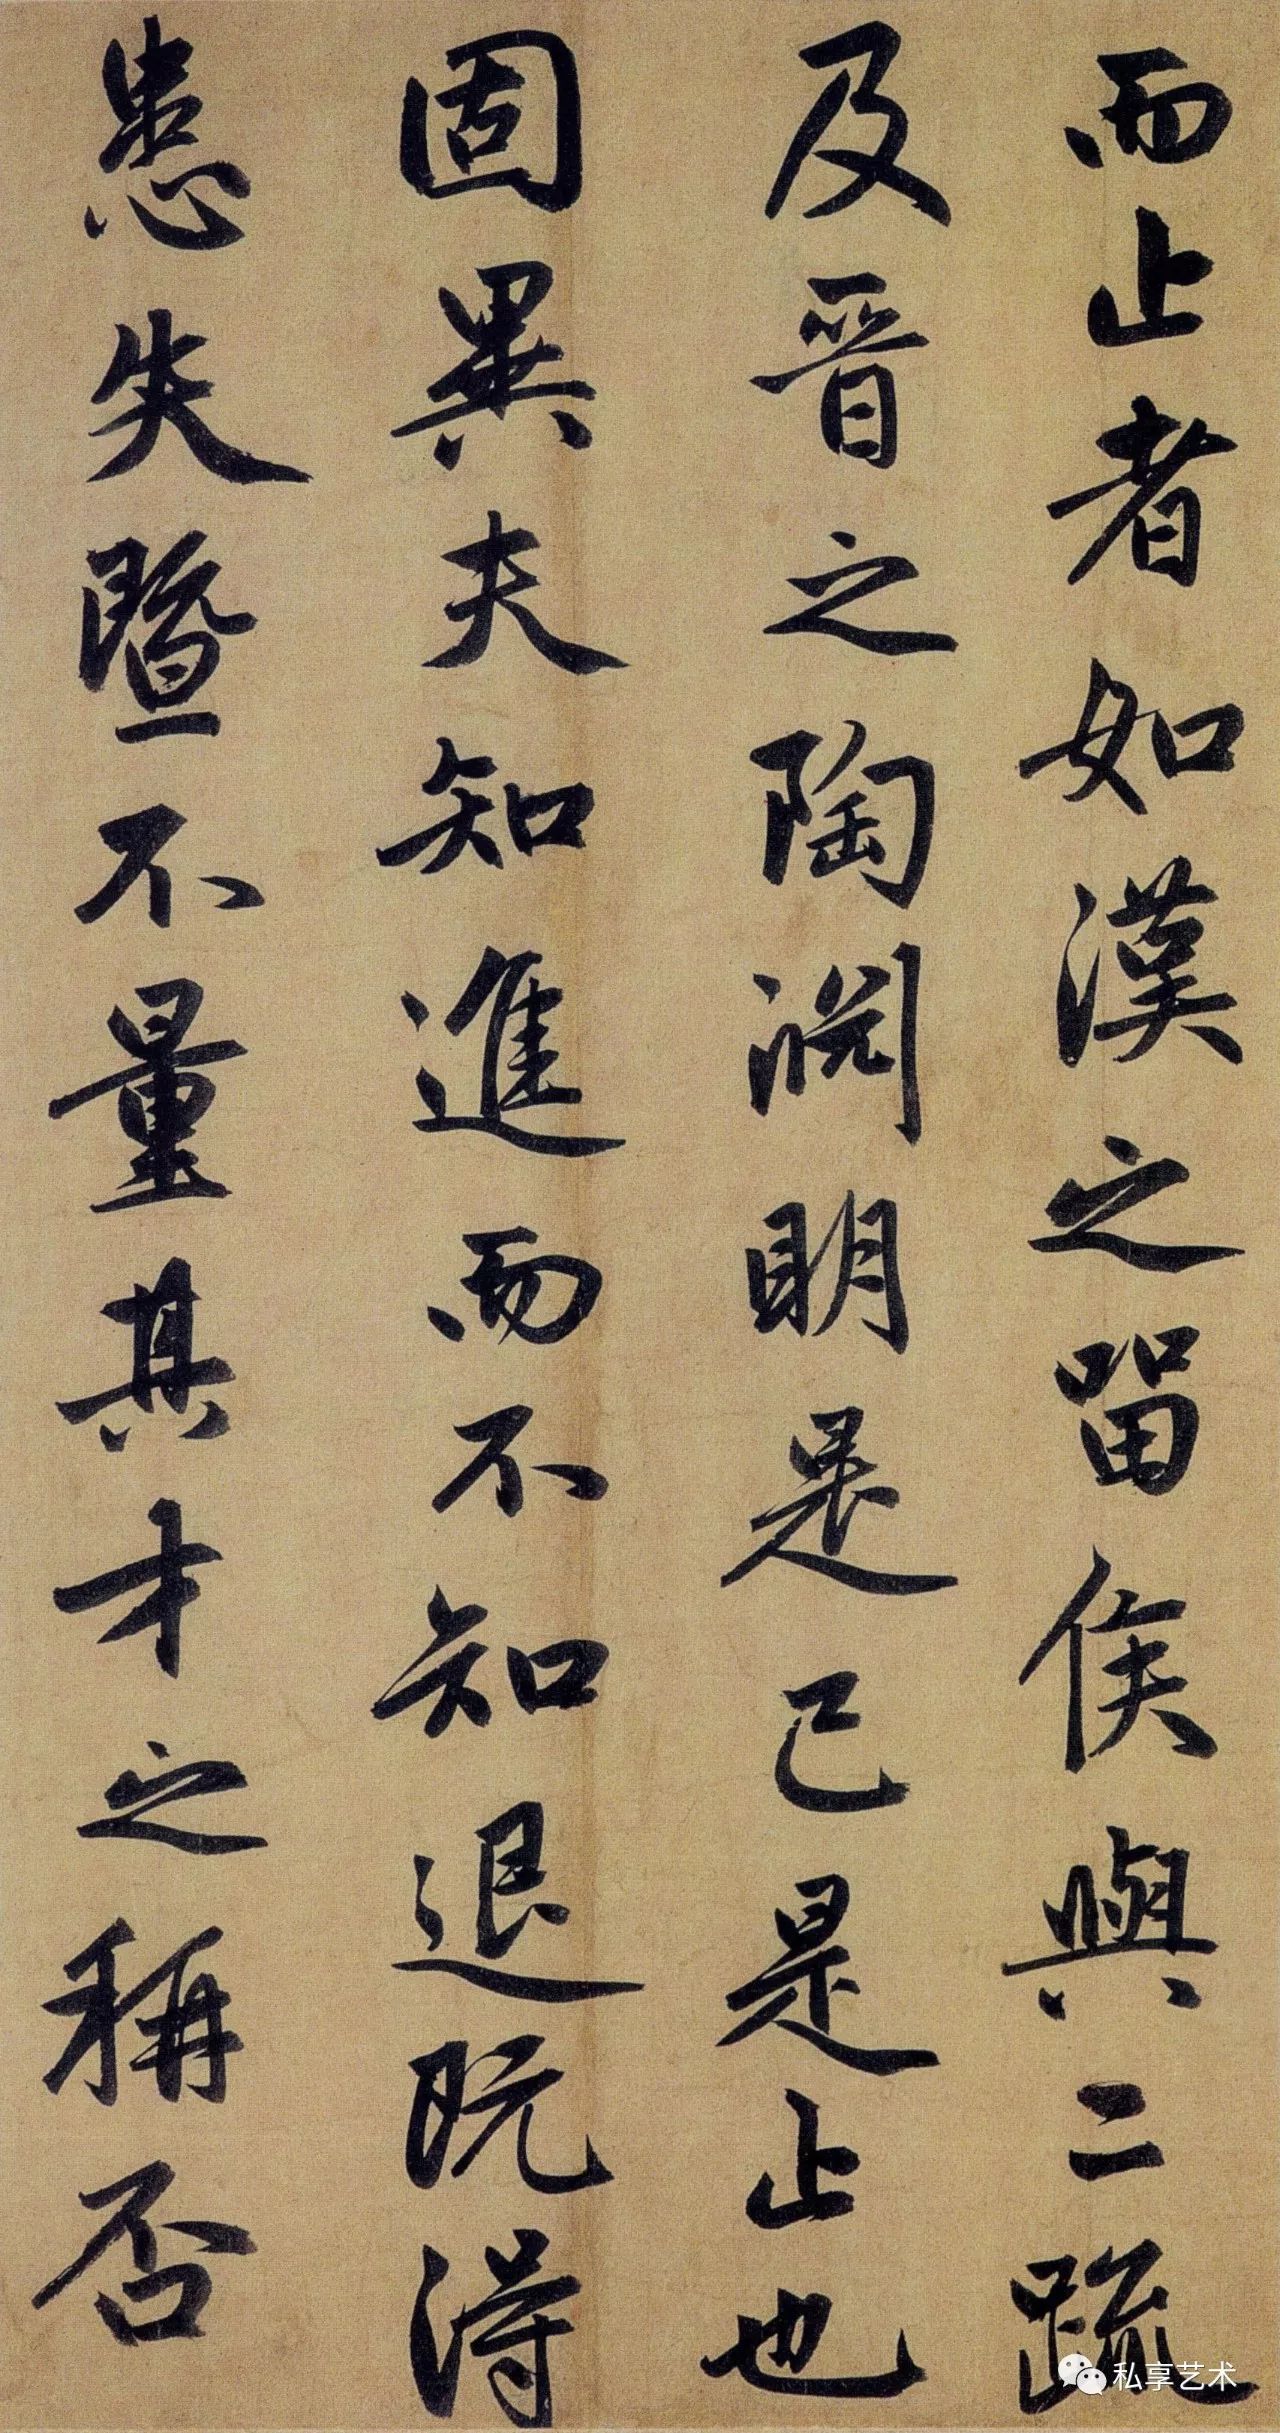 而止者如漢之留侯與二疏
及晉之陶淵明是已是止也
固異夫知進而不知退既得
患失暨不量其才之稱否
私享艺术